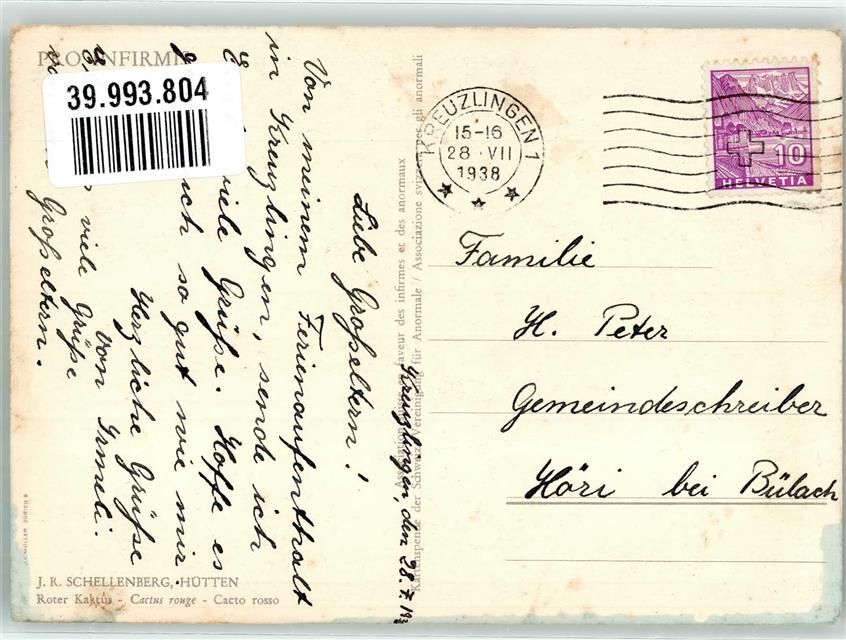 PRO INFIRMIS
39.993.804
KREUZLINGEN 1
15-16
28 VII
1938
10
HELVETIA
Familie
H. Peter
Gemeindeschreiber
Höri bei Bülach
Kreuzlingen, den 28.7.19
Liebe Großeltern!
Von meinem Ferienaufenthalt
in Kreuzlingen, sende ich
viele Grüße. Hoffe es
so gut wie mir
Herzliche Grüße
von Irmeli.
viele Grüße
Großeltern.
faveur des infirmes et des anormaux
Kartenspende der Schweiz. Vereinigung für Anormale / Associazione svizzera gli anormali
J. R. SCHELLENBERG, HÜTTEN
Roter Kaktus - Cactus rouge - Cacto rosso
MÜLLER ZÜRICH 8